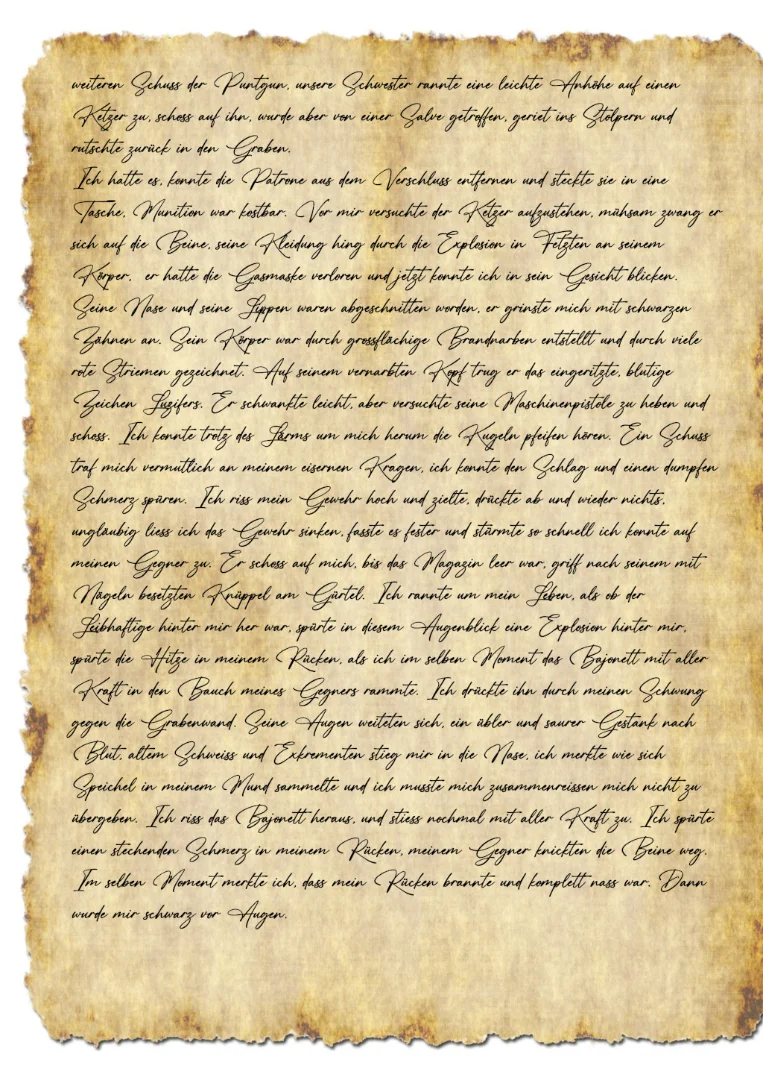 weiteren Schuss der Puntgun, unsere Schwester rannte eine leichte Anhöhe auf einen
Ketzer zu, schoss auf ihn, wurde aber von einer Salve getroffen, geriet ins Stolpern und
rutschte zurück in den Graben.
Ich hatte es, konnte die Patrone aus dem Verschluss entfernen und steckte sie in eine
Tasche, Munition war kostbar. Vor mir versuchte der Ketzer aufzustehen, mühsam zwang er
sich auf die Beine, seine Kleidung hing durch die Explosion in Fetzten an seinem
Körper, er hatte die Gasmaske verloren und jetzt konnte ich in sein Gesicht blicken.
Seine Nase und seine Lippen waren abgeschnitten worden, er grinste mich mit schwarzen
Zähnen an. Sein Körper war durch grossflächige Brandnarben entstellt und durch viele
rote Striemen gezeichnet. Auf seinem vernarbten Kopf trug er das eingeritzte, blutige
Zeichen Luzifers. Er schwankte leicht, aber versuchte seine Maschinenpistole zu heben und
schoss. Ich konnte trotz des Lärms um mich herum die Kugeln pfeifen hören. Ein Schuss
traf mich vermutlich an meinem eisernen Kragen, ich konnte den Schlag und einen dumpfen
Schmerz spüren. Ich riss mein Gewehr hoch und zielte, drückte ab und wieder nichts,
ungläubig liess ich das Gewehr sinken, fasste es fester und stürmte so schnell ich konnte auf
meinen Gegner zu. Er schoss auf mich, bis das Magazin leer war, griff nach seinem mit
Nägeln besetzten Knüppel am Gürtel. Ich rannte um mein Leben, als ob der
Leibhaftige hinter mir her war, spürte in diesem Augenblick eine Explosion hinter mir,
spürte die Hitze in meinem Rücken, als ich im selben Moment das Bajonett mit aller
Kraft in den Bauch meines Gegners rammte. Ich drückte ihn durch meinen Schwung
gegen die Grabenwand. Seine Augen weiteten sich, ein übler und saurer Gestank nach
Blut, altem Schweiss und Exkrementen stieg mir in die Nase, ich merkte wie sich
Speichel in meinem Mund sammelte und ich musste mich zusammenreissen mich nicht zu
übergeben. Ich riss das Bajonett heraus, und stiess nochmal mit aller Kraft zu. Ich spürte
einen stechenden Schmerz in meinem Rücken, meinem Gegner knickten die Beine weg.
Im selben Moment merkte ich, dass mein Rücken brannte und komplett nass war. Dann
wurde mir schwarz vor Augen.